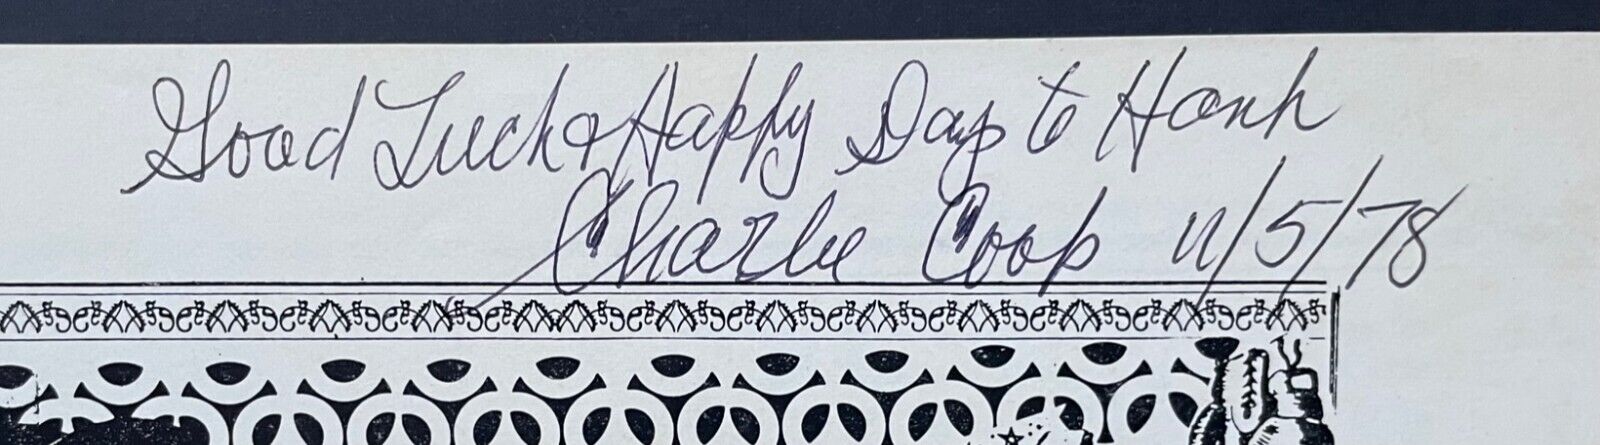 Good Luck & Happy Days to Hank
Charlie Coop 11/5/78